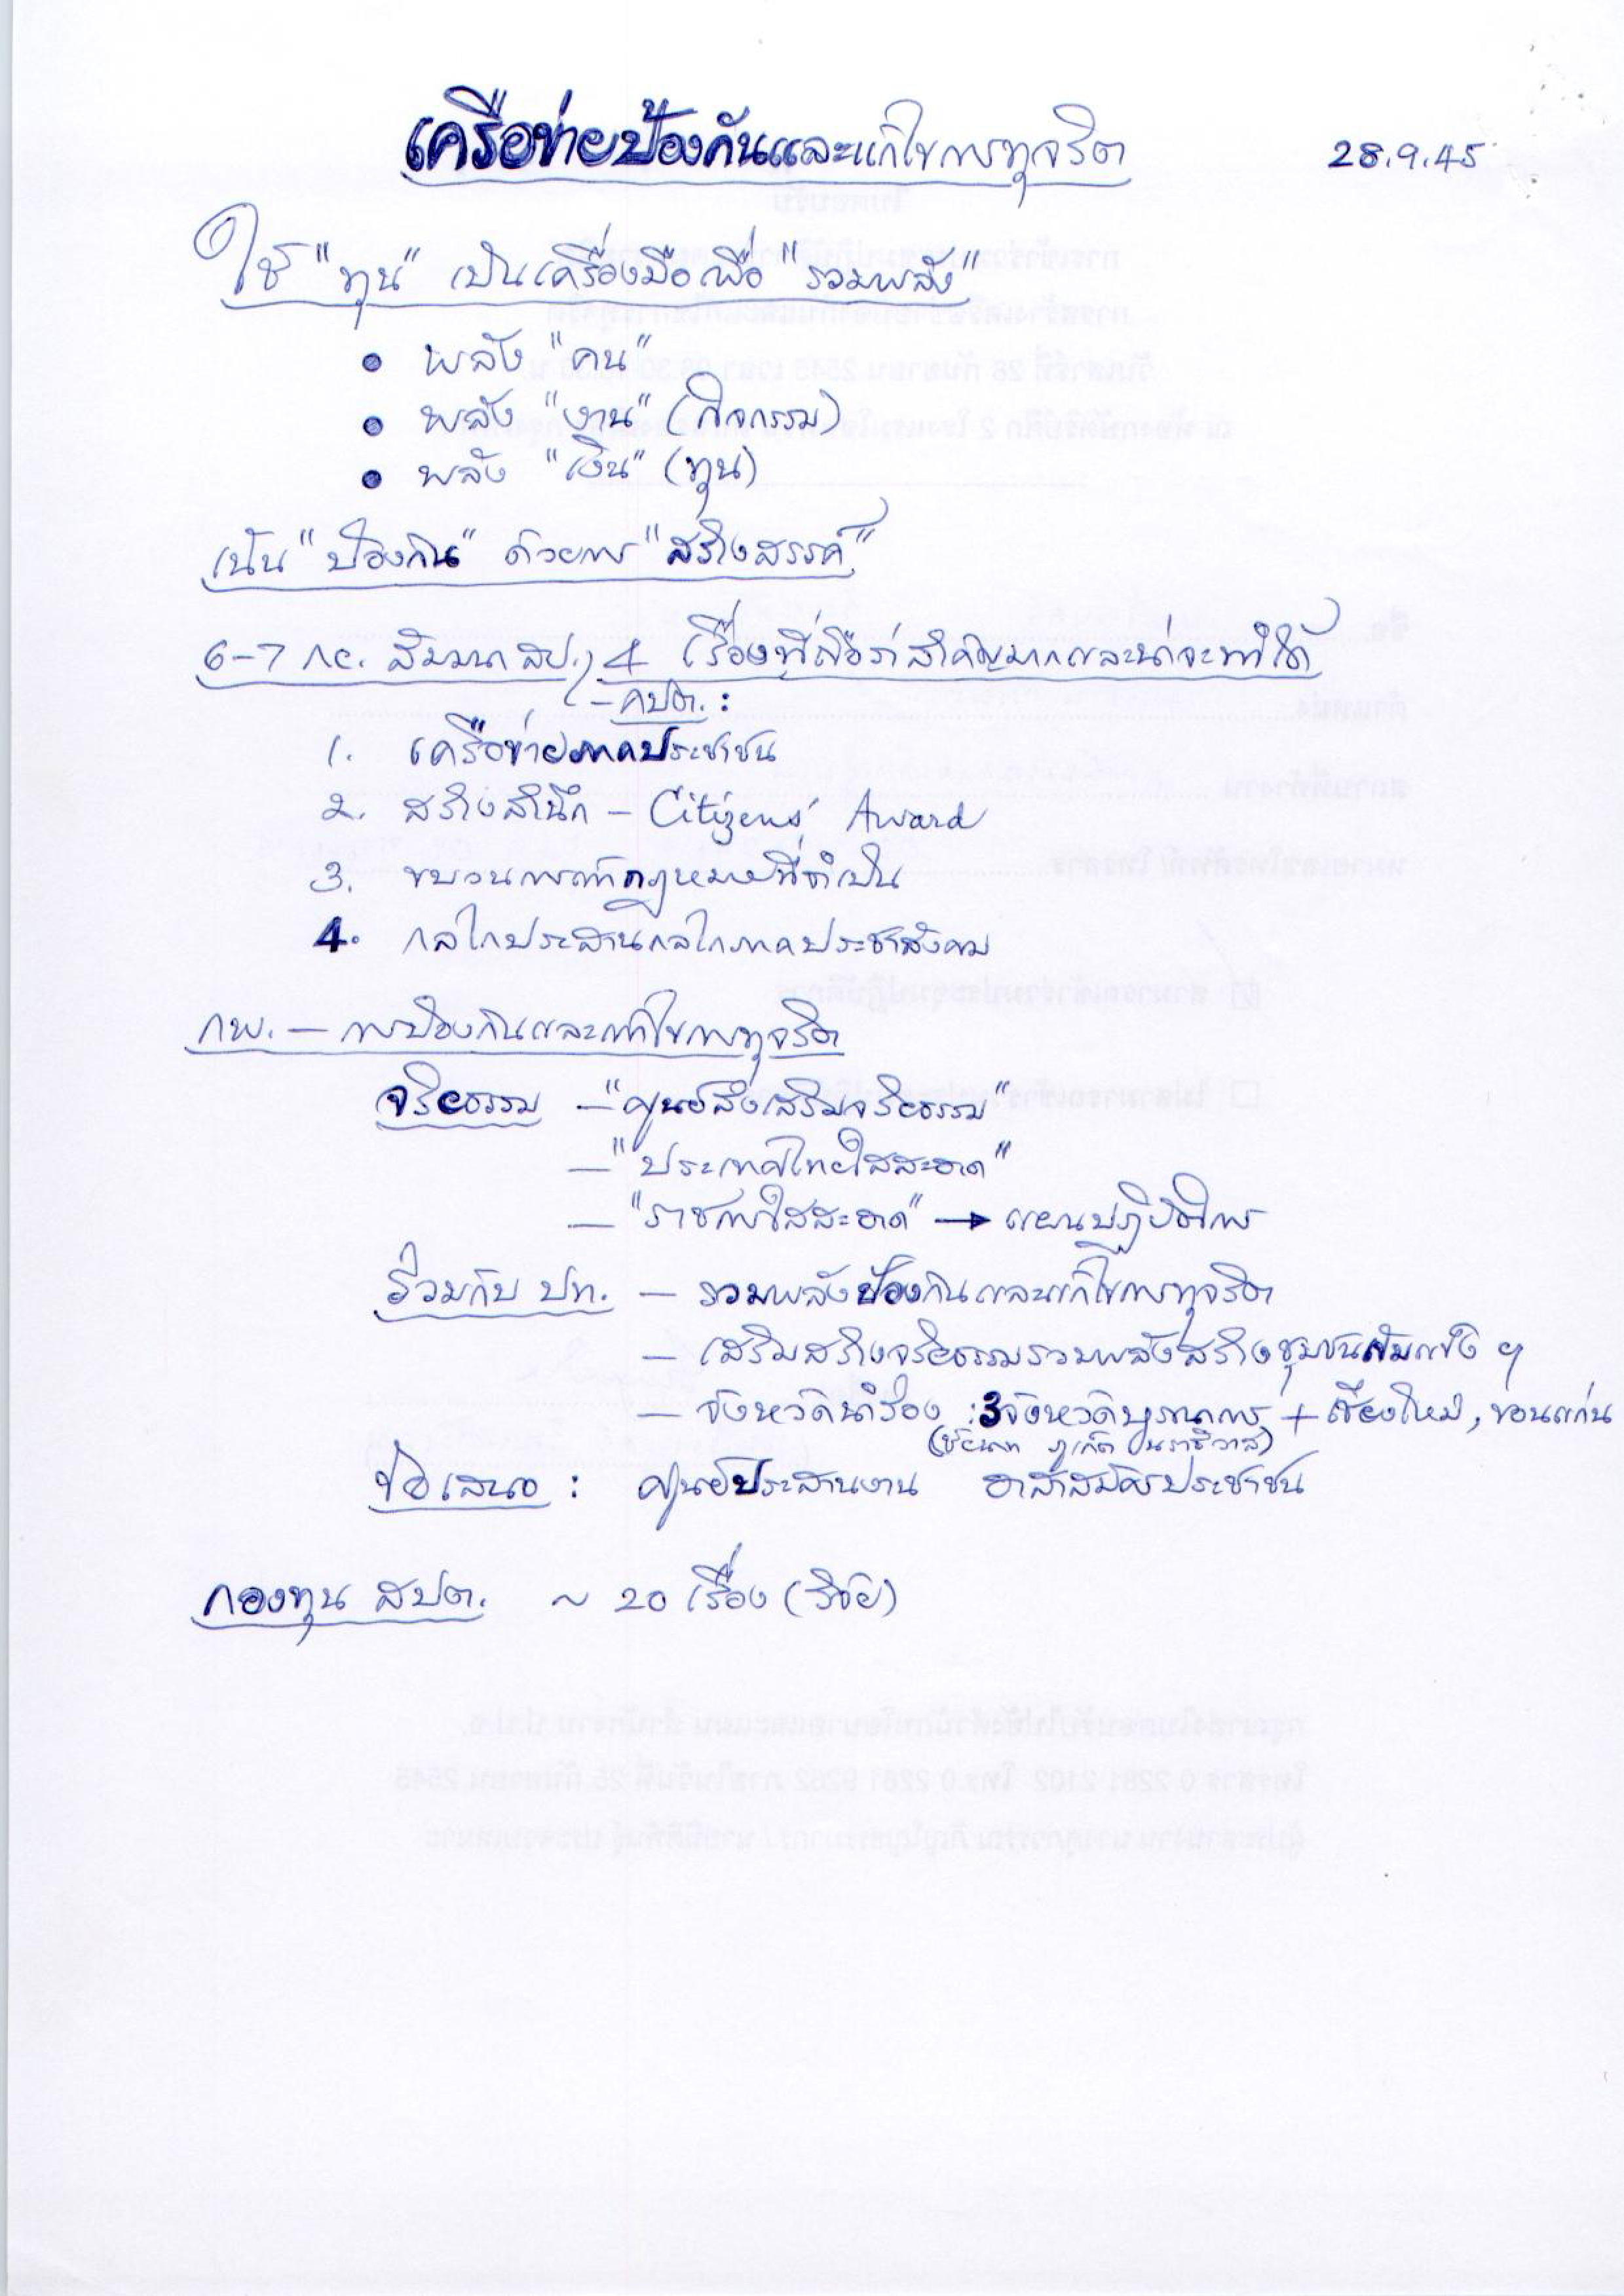 เครือข่ายป้องกันและแก้ไขการทุจริต
28.9.45
ใช้ "ทุน" เป็นเครื่องมือเพื่อ "รวมพลัง"
• พลัง "คน"
• พลัง "งาน" (กิจกรรม)
• พลัง "เงิน" (ทุน)
เน้น "ป้องกัน" ด้วยการ "สร้างสรรค์"
6-7 กย. สัมมนา สป., 4 เรื่องที่ถือว่าสำคัญมากและน่าจะทำได้
- คปต. :
1. เครือข่ายภาคประชาชน
2. สร้างสำนึก - Citizens' Award
3. ขบวนการทำกฎหมายที่จำเป็น
4. กลไกประสานกลไกภาคประชาสังคม
กพ. - การป้องกันและแก้ไขการทุจริต
จริยธรรม - "ศูนย์ส่งเสริมจริยธรรม"
- "ประเทศไทยใสสะอาด"
- "ราชการใสสะอาด" → แผนปฏิบัติการ
ร่วมกับ ปท. - รวมพลังป้องกันและแก้ไขการทุจริต
- เสริมสร้างจริยธรรมรวมพลังสร้างชุมชนเข้มแข็ง ฯ
- จังหวัดนำร่อง : 3 จังหวัดบูรณาการ + เชียงใหม่, ขอนแก่น
(ชัยนาท ภูเก็ต นราธิวาส)
ข้อเสนอ : ศูนย์ประสานงาน อาสาสมัครประชาชน
กองทุน สปต. ~ 20 เรื่อง (วิจัย)